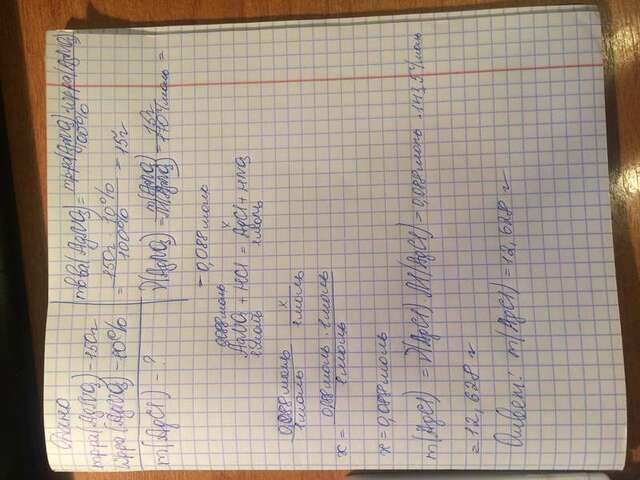 Дано
mр-ра(AgNO3) - 150г
ωр-ра(AgNO3) - 10%
m(AgCl) - ?
mв-ва(AgNO3) = mр-ра(AgNO3)·ωр-ра(AgNO3) / 100%
= 150г · 10% / 100% = 15г
ν(AgNO3) = m(AgNO3) / M(AgNO3) = 15г / 170г/моль =
= 0,088 моль
0,088 моль x
AgNO3 + HCl = AgCl + HNO3
1 моль 1 моль
0,088 моль / 1 моль x / 1 моль
x = 0,088 моль · 1 моль / 1 моль
x = 0,088 моль
m(AgCl) = ν(AgCl) · M(AgCl) = 0,088 моль · 143,5 г/моль
= 12,628 г
Ответ: m(AgCl) = 12,628 г